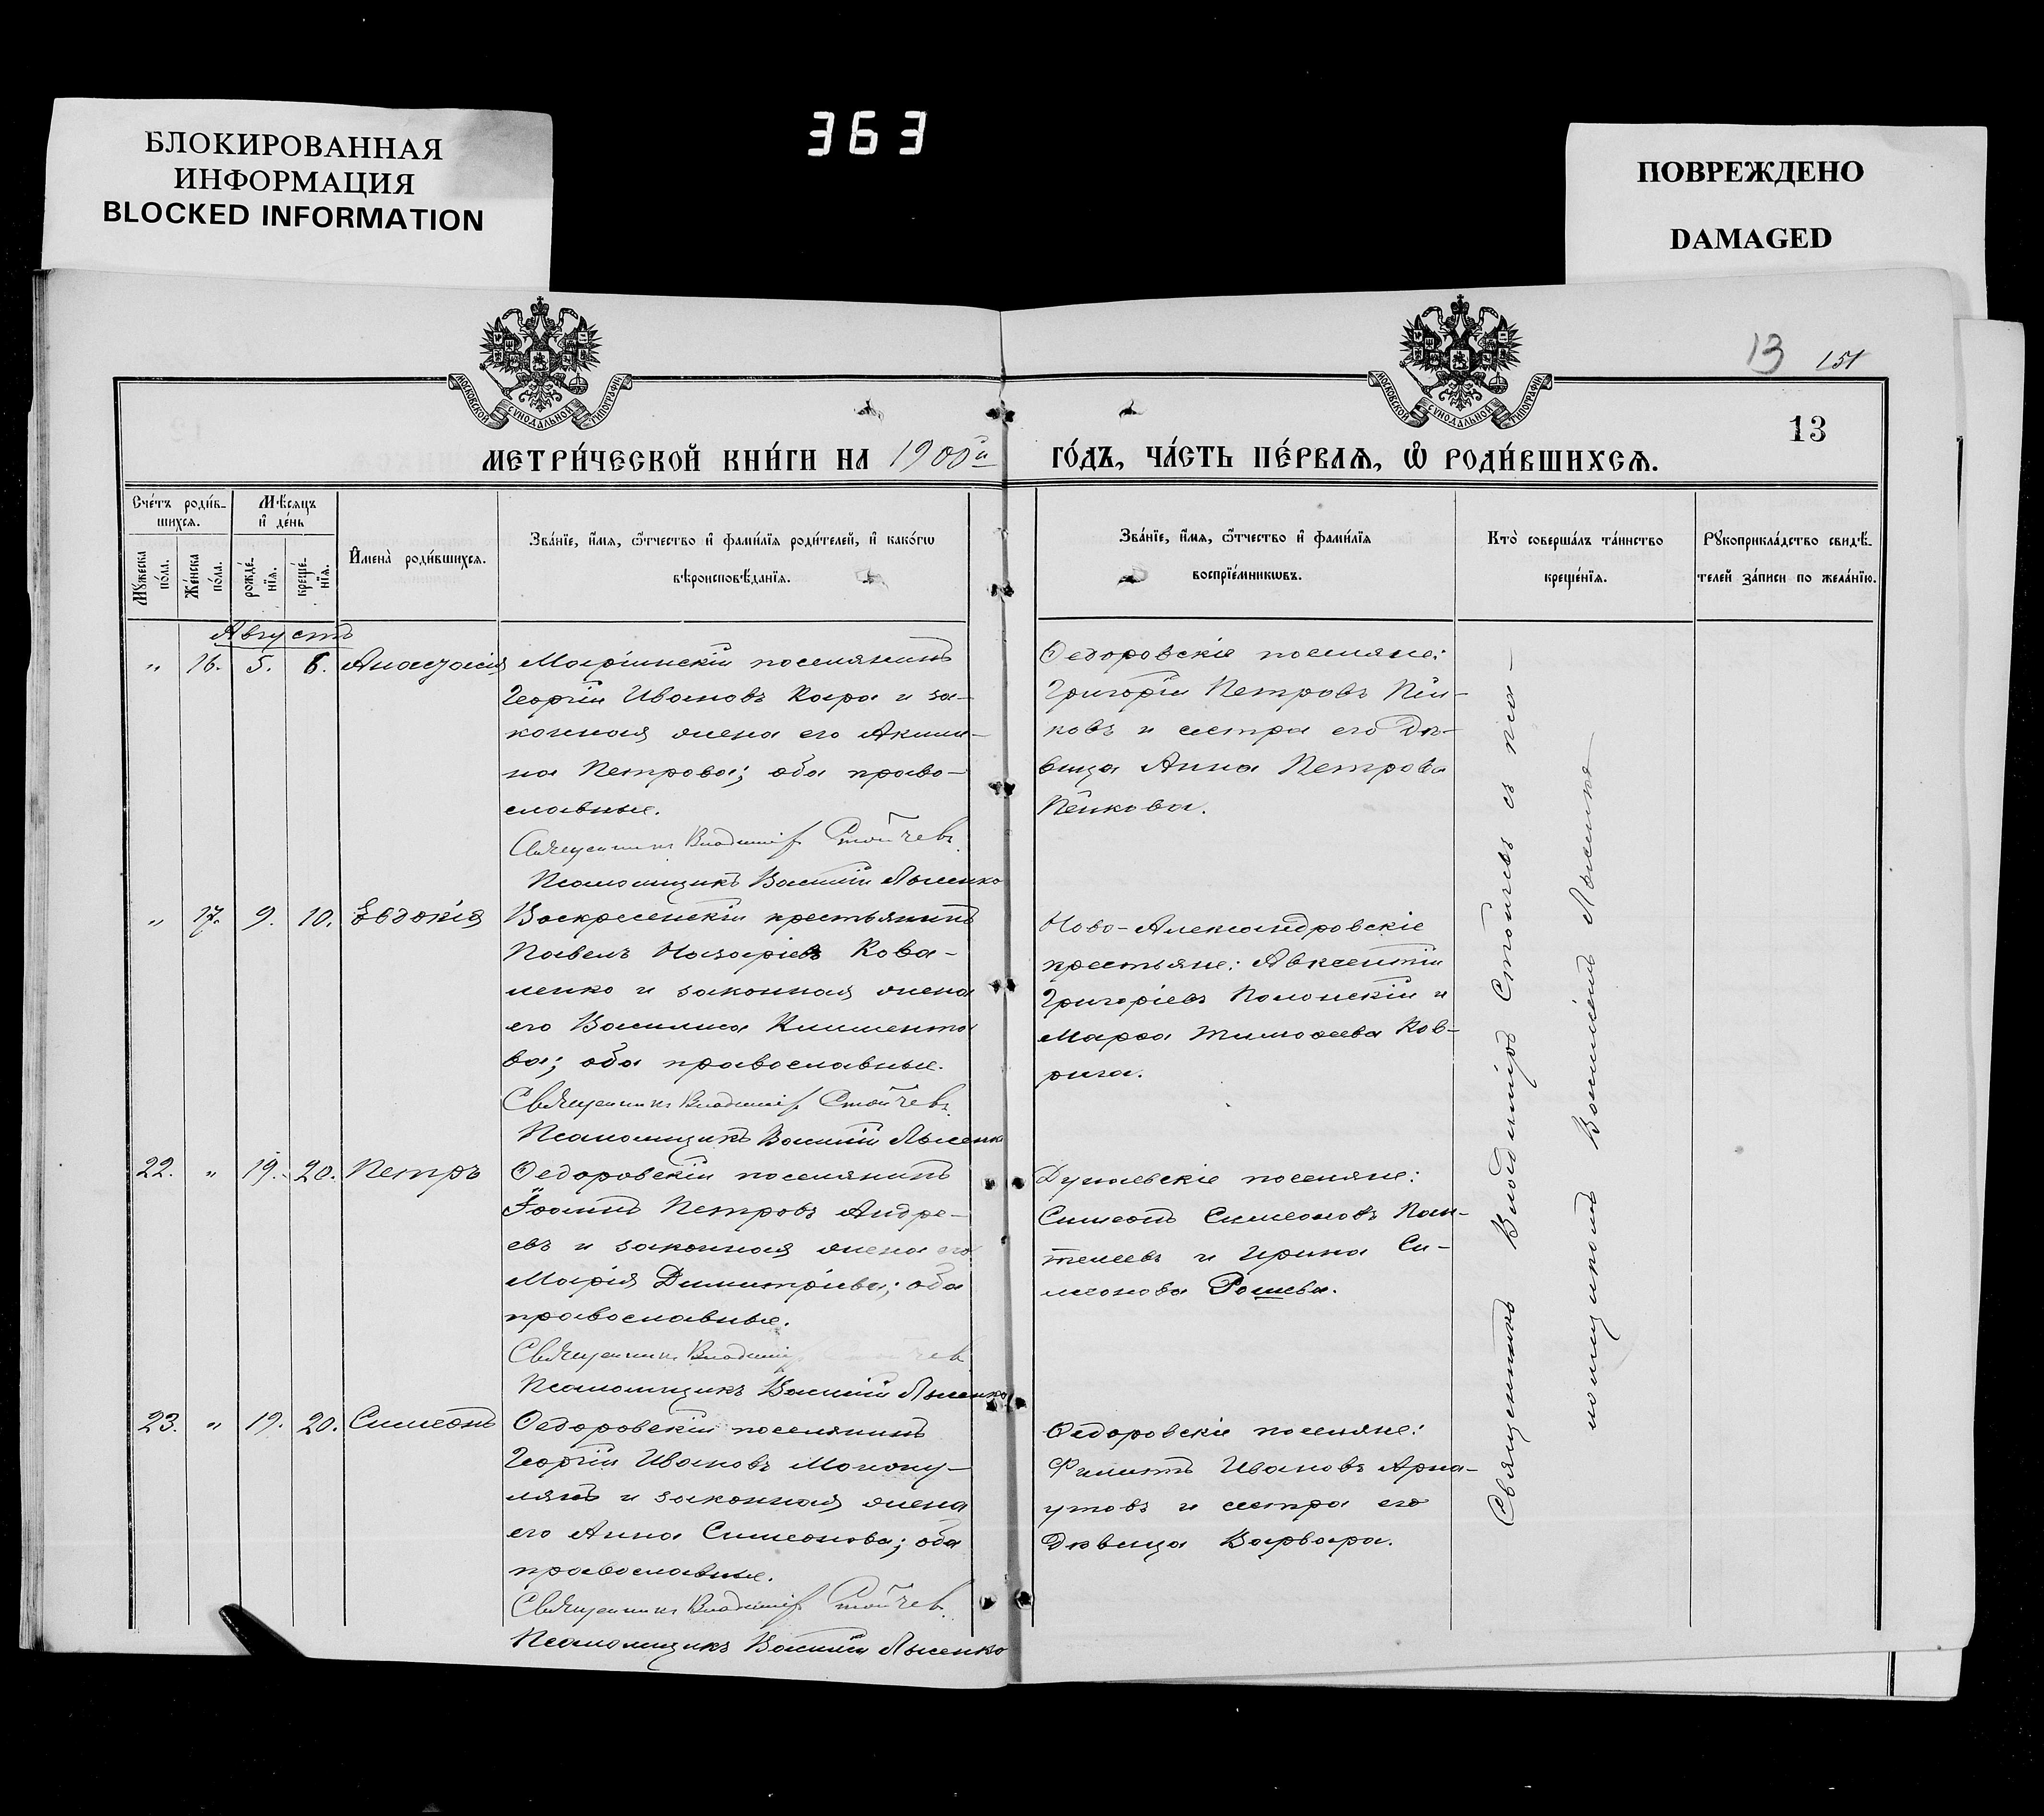 БЛОКИРОВАННАЯ
ИНФОРМАЦИЯ
BLOCKED INFORMATION
363
ПОВРЕЖДЕНО
DAMAGED
МОСКОВСКОЙ СѴНОДАЛЬНОЙ ТИПОГРАФІИ
МОСКОВСКОЙ СѴНОДАЛЬНОЙ ТИПОГРАФІИ
13 151
13
МЕТРИ́ЧЕСКОЙ КНИ́ГИ НА 1900й ГО́ДЪ, ЧА́СТЬ ПЕ́РВАѦ, Ѡ҆ РОДИ́ВШИХСѦ.
Сче́тъ роди́в-
шихсѧ.
Мꙋжеска по́ла.
Же́нска по́ла.
Мѣ́сѧцъ
и҆ де́нь
рожде́-
нїѧ.
креще́-
нїѧ.
И҆мена̀ роди́вшихсѧ.
Зва́нїе, и҆́мѧ, ѻ҆́тчество и҆ фами́лїѧ роди́телей, и҆ како́гѡ
вѣроисповѣ́данїѧ.
Зва́нїе, и҆́мѧ, ѻ҆́тчество и҆ фами́лїѧ
воспрїе́мникѡвъ.
Кто̀ соверша́лъ та́инство
креще́нїѧ.
Рꙋкоприкла́дство свидѣ́-
телей за́писи по жела́нїю.
Августъ
" 16. 5. 6. Анастасія Маріинскій поселянинъ
Георгій Ивановъ Кара и за-
конная жена его Акили-
на Петрова; оба право-
славные.
Священникъ Владиміръ Стойчевъ.
Псаломщикъ Василій Лысенко
Ѳедоровскіе поселяне:
Григорій Петровъ Пей-
ковъ и сестра его дѣ-
вица Анна Петрова
Пейкова.
" 17. 9. 10. Евдокія Воскресенскій крестьянинъ
Павелъ Назаріевъ Кова-
ленко и законная жена
его Василиса Климента
ва; оба православные.
Священникъ Владиміръ Стойчевъ.
Псаломщикъ Василій Лысенко
Ново-Александровскіе
крестьяне: Авксентій
Григоріевъ Полонскій и
Марѳа Тимоѳеева Ков-
рига.
22. " 19. 20. Петръ Ѳедоровскій поселянинъ
Іоаннъ Петровъ Андре-
евъ и законная жена его
Марія Димитріева; оба
православные.
Священникъ Владиміръ Стойчевъ
Псаломщикъ Василій Лысенко
Дунаевскіе поселяне:
Симеонъ Симеоновъ Пан-
телеевъ и Ирина Си-
меонова Рошева.
23. " 19. 20. Симеонъ Ѳедоровскій поселянинъ
Георгій Ивановъ
и законная жена
его Анна Симеонова; оба
православные.
Священникъ Владиміръ Стойчевъ.
Псаломщикъ Василій Лысенко
Ѳедоровскіе поселяне:
Филиппъ Ивановъ Арна-
утовъ и сестра его
дѣвица Варвара.
Священникъ Владиміръ Стойчевъ съ пса-
ломщикомъ Василіемъ Лысенко